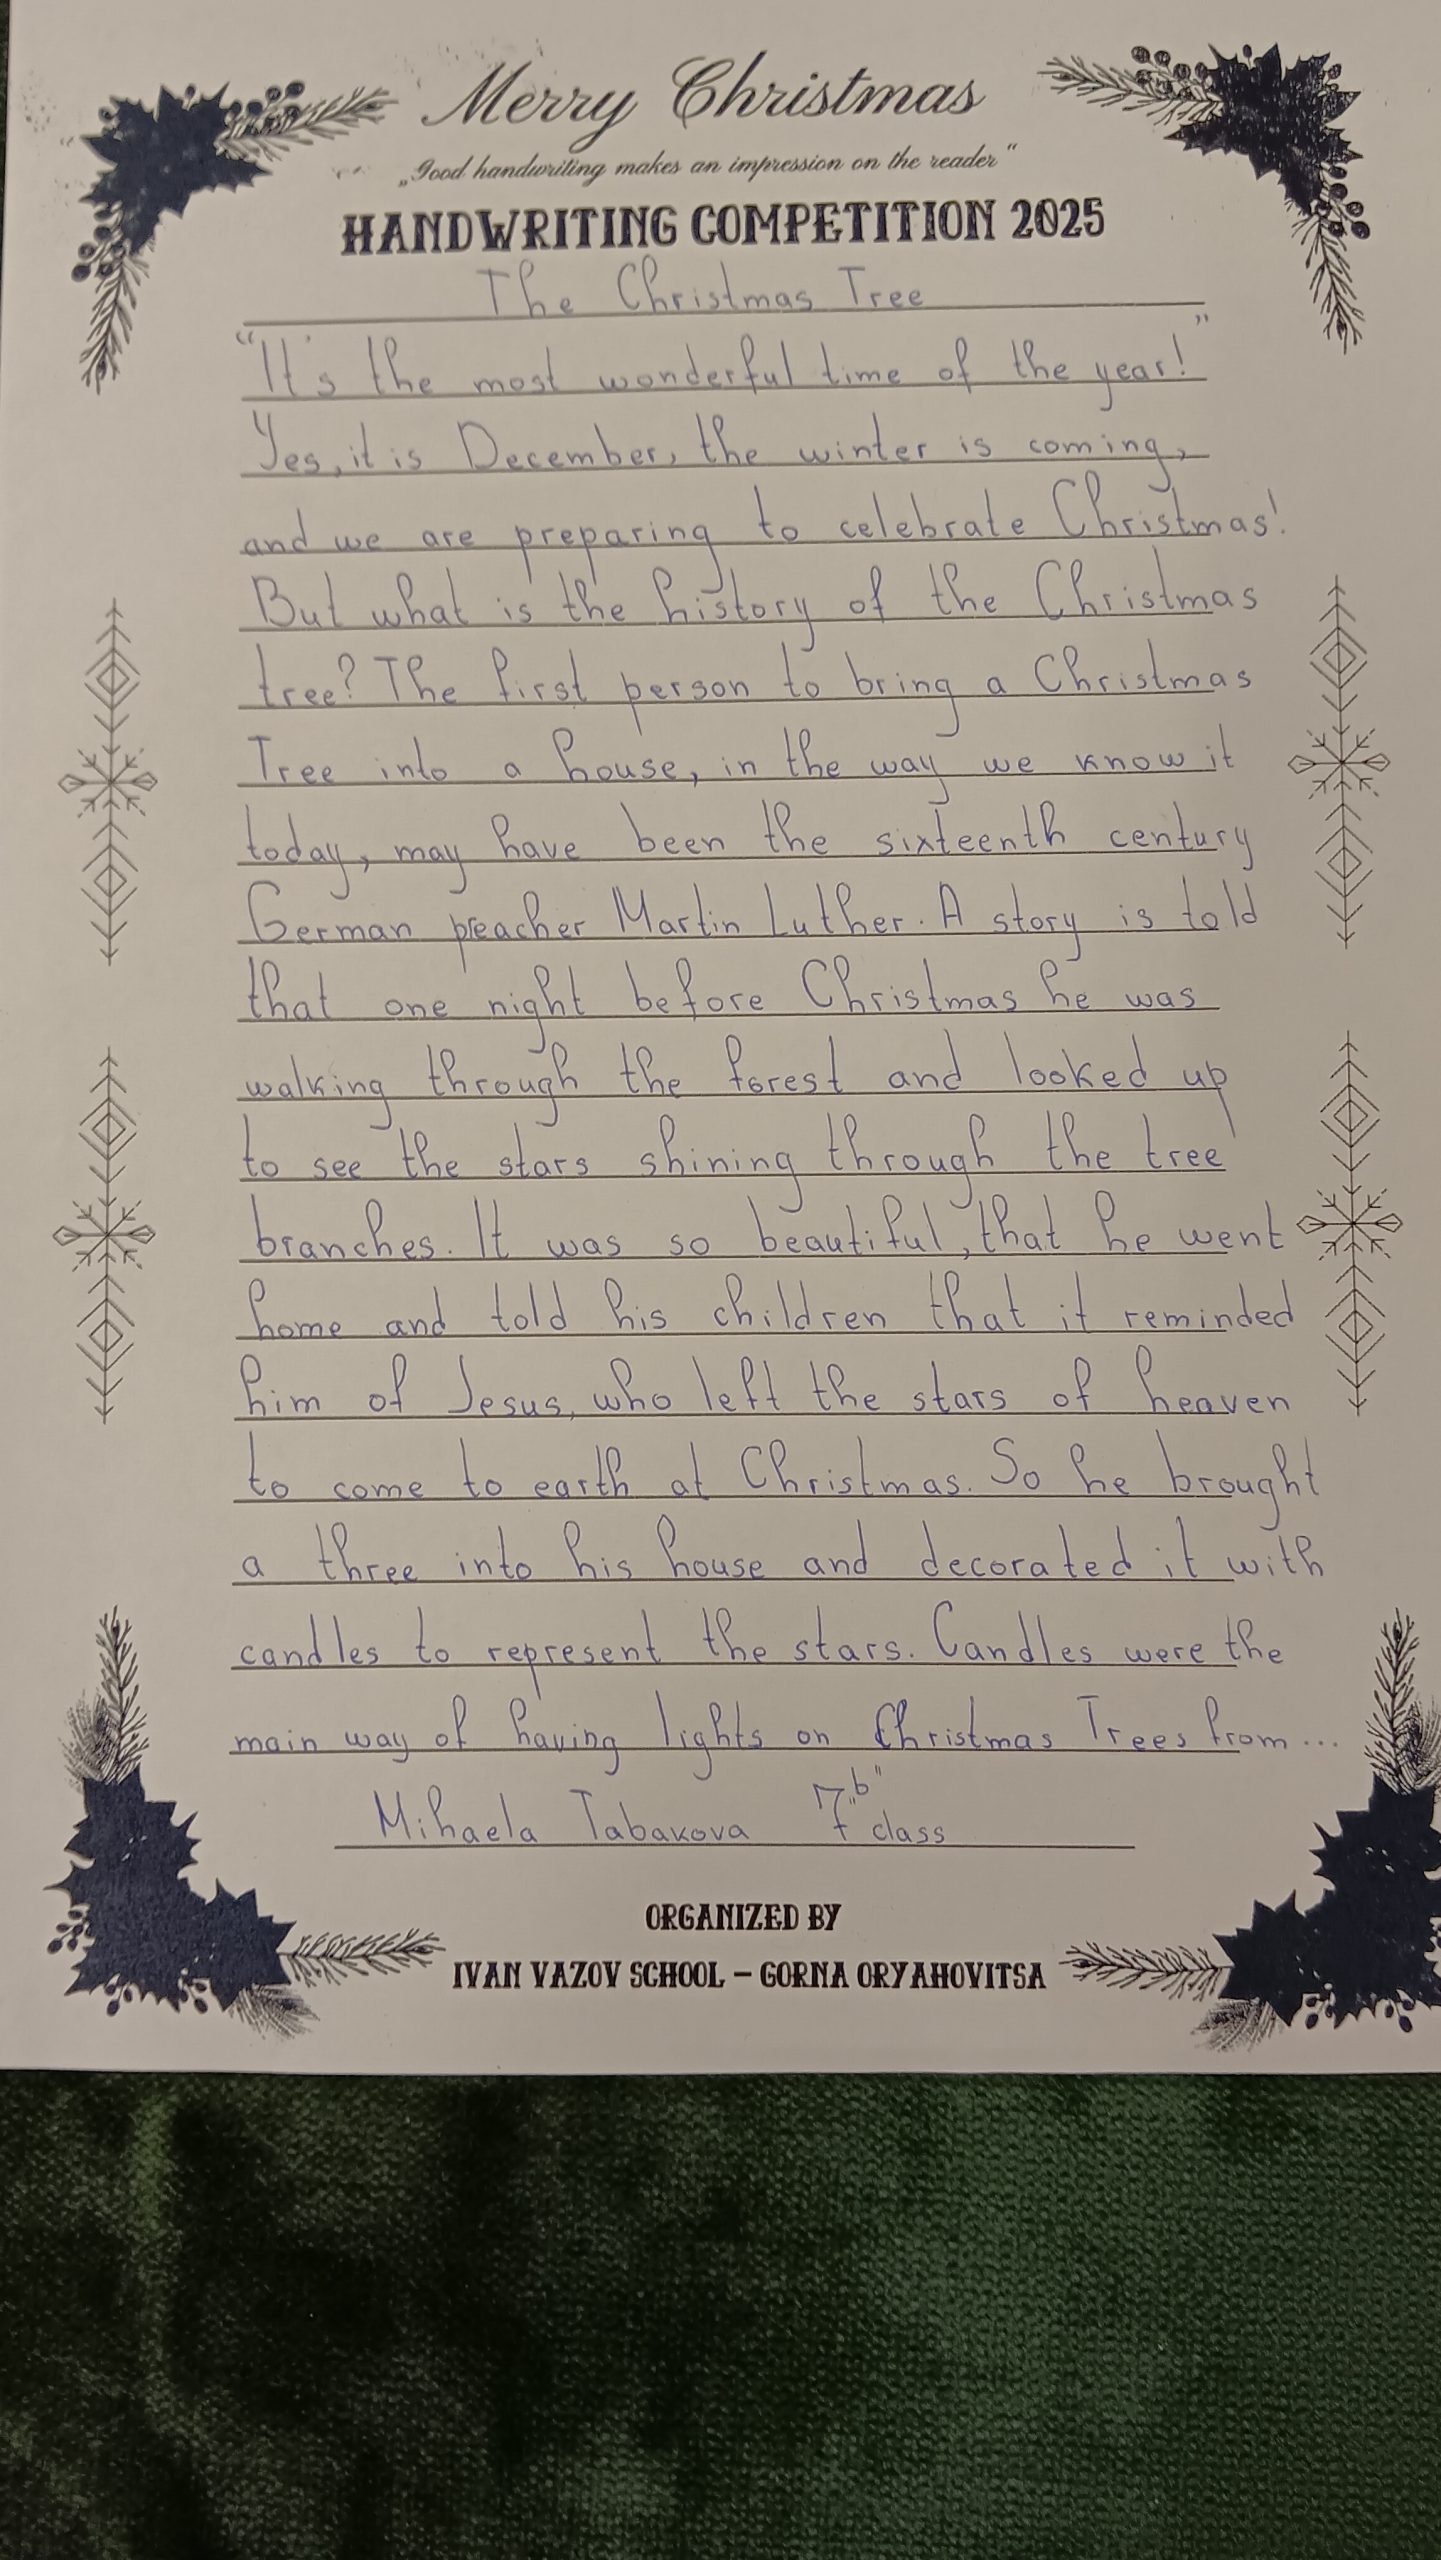 Merry Christmas
„Good handwriting makes an impression on the reader“
HANDWRITING COMPETITION 2025
The Christmas Tree
“It's the most wonderful time of the year!”
Yes, it is December, the winter is coming,
and we are preparing to celebrate Christmas!
But what is the history of the Christmas
tree? The first person to bring a Christmas
Tree into a house, in the way we know it
today, may have been the sixteenth century
German preacher Martin Luther. A story is told
that one night before Christmas he was
walking through the forest and looked up
to see the stars shining through the tree
branches. It was so beautiful, that he went
home and told his children that it reminded
him of Jesus, who left the stars of heaven
to come to earth at Christmas. So he brought
a three into his house and decorated it with
candles to represent the stars. Candles were the
main way of having lights on Christmas Trees from...
Mihaela Tabakova 7„b“ class
ORGANIZED BY
IVAN VAZOV SCHOOL – GORNA ORYAHOVITSA